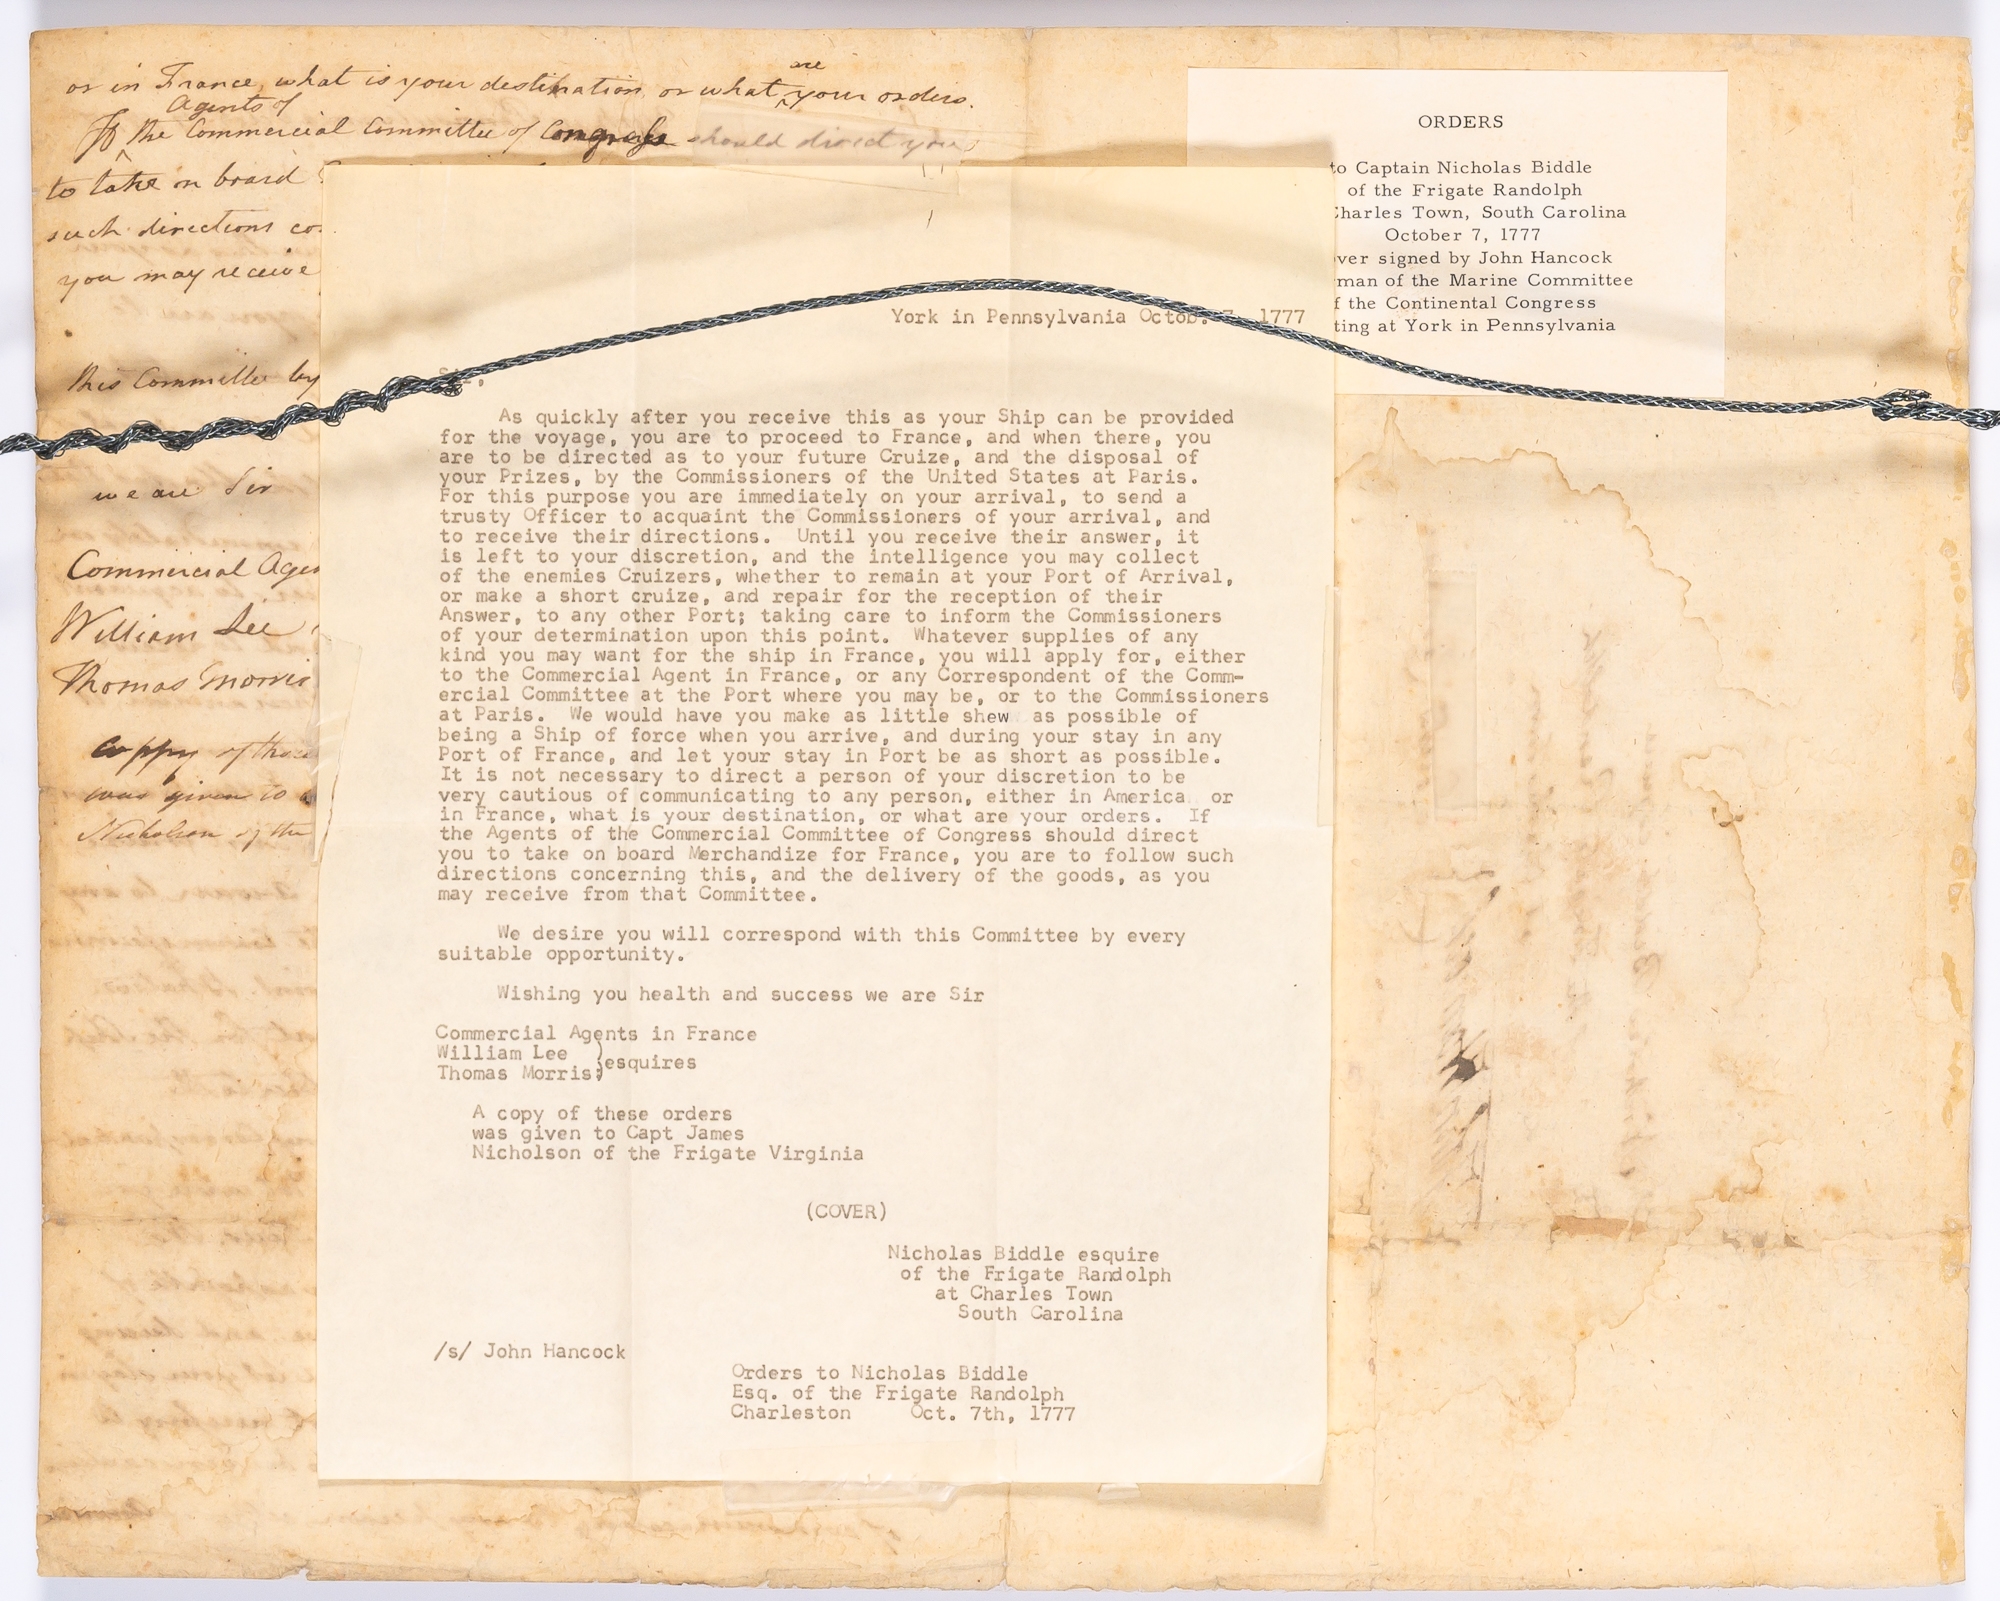 or in France, what is your destination or what are your orders.
If the Agents of Commercial Committee of Congress should direct you
to take on board
such directions co
you may receive
this Committee by
we are Sir
Commercial Agen
William Lee
Thomas Morris
coppy of these
was given to
Nicholson of the
ORDERS
to Captain Nicholas Biddle
of the Frigate Randolph
Charles Town, South Carolina
October 7, 1777
ver signed by John Hancock
man of the Marine Committee
f the Continental Congress
ting at York in Pennsylvania
York in Pennsylvania Octob. 7, 1777
Sir,
As quickly after you receive this as your Ship can be provided
for the voyage, you are to proceed to France, and when there, you
are to be directed as to your future Cruize, and the disposal of
your Prizes, by the Commissioners of the United States at Paris.
For this purpose you are immediately on your arrival, to send a
trusty Officer to acquaint the Commissioners of your arrival, and
to receive their directions. Until you receive their answer, it
is left to your discretion, and the intelligence you may collect
of the enemies Cruizers, whether to remain at your Port of Arrival,
or make a short cruize, and repair for the reception of their
Answer, to any other Port; taking care to inform the Commissioners
of your determination upon this point. Whatever supplies of any
kind you may want for the ship in France, you will apply for, either
to the Commercial Agent in France, or any Correspondent of the Comm-
ercial Committee at the Port where you may be, or to the Commissioners
at Paris. We would have you make as little shew as possible of
being a Ship of force when you arrive, and during your stay in any
Port of France, and let your stay in Port be as short as possible.
It is not necessary to direct a person of your discretion to be
very cautious of communicating to any person, either in America or
in France, what is your destination, or what are your orders. If
the Agents of the Commercial Committee of Congress should direct
you to take on board Merchandize for France, you are to follow such
directions concerning this, and the delivery of the goods, as you
may receive from that Committee.
We desire you will correspond with this Committee by every
suitable opportunity.
Wishing you health and success we are Sir
Commercial Agents in France
William Lee )
Thomas Morris; esquires
A copy of these orders
was given to Capt James
Nicholson of the Frigate Virginia
(COVER)
Nicholas Biddle esquire
of the Frigate Randolph
at Charles Town
South Carolina
/s/ John Hancock
Orders to Nicholas Biddle
Esq. of the Frigate Randolph
Charleston Oct. 7th, 1777